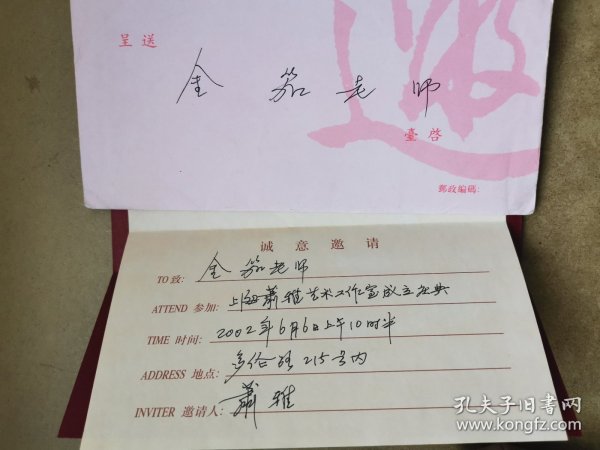 呈送
金笳老师
邀
臺啓
郵政编碼:
诚意邀请
TO致: 金笳老师
ATTEND 参加: 上海萧雅艺术工作室成立庆典
TIME 时间: 2002年6月6日上午10时半
ADDRESS 地点: 多伦路215号内
INVITER 邀请人: 萧雅
孔夫子旧书网
www.kongfz.com